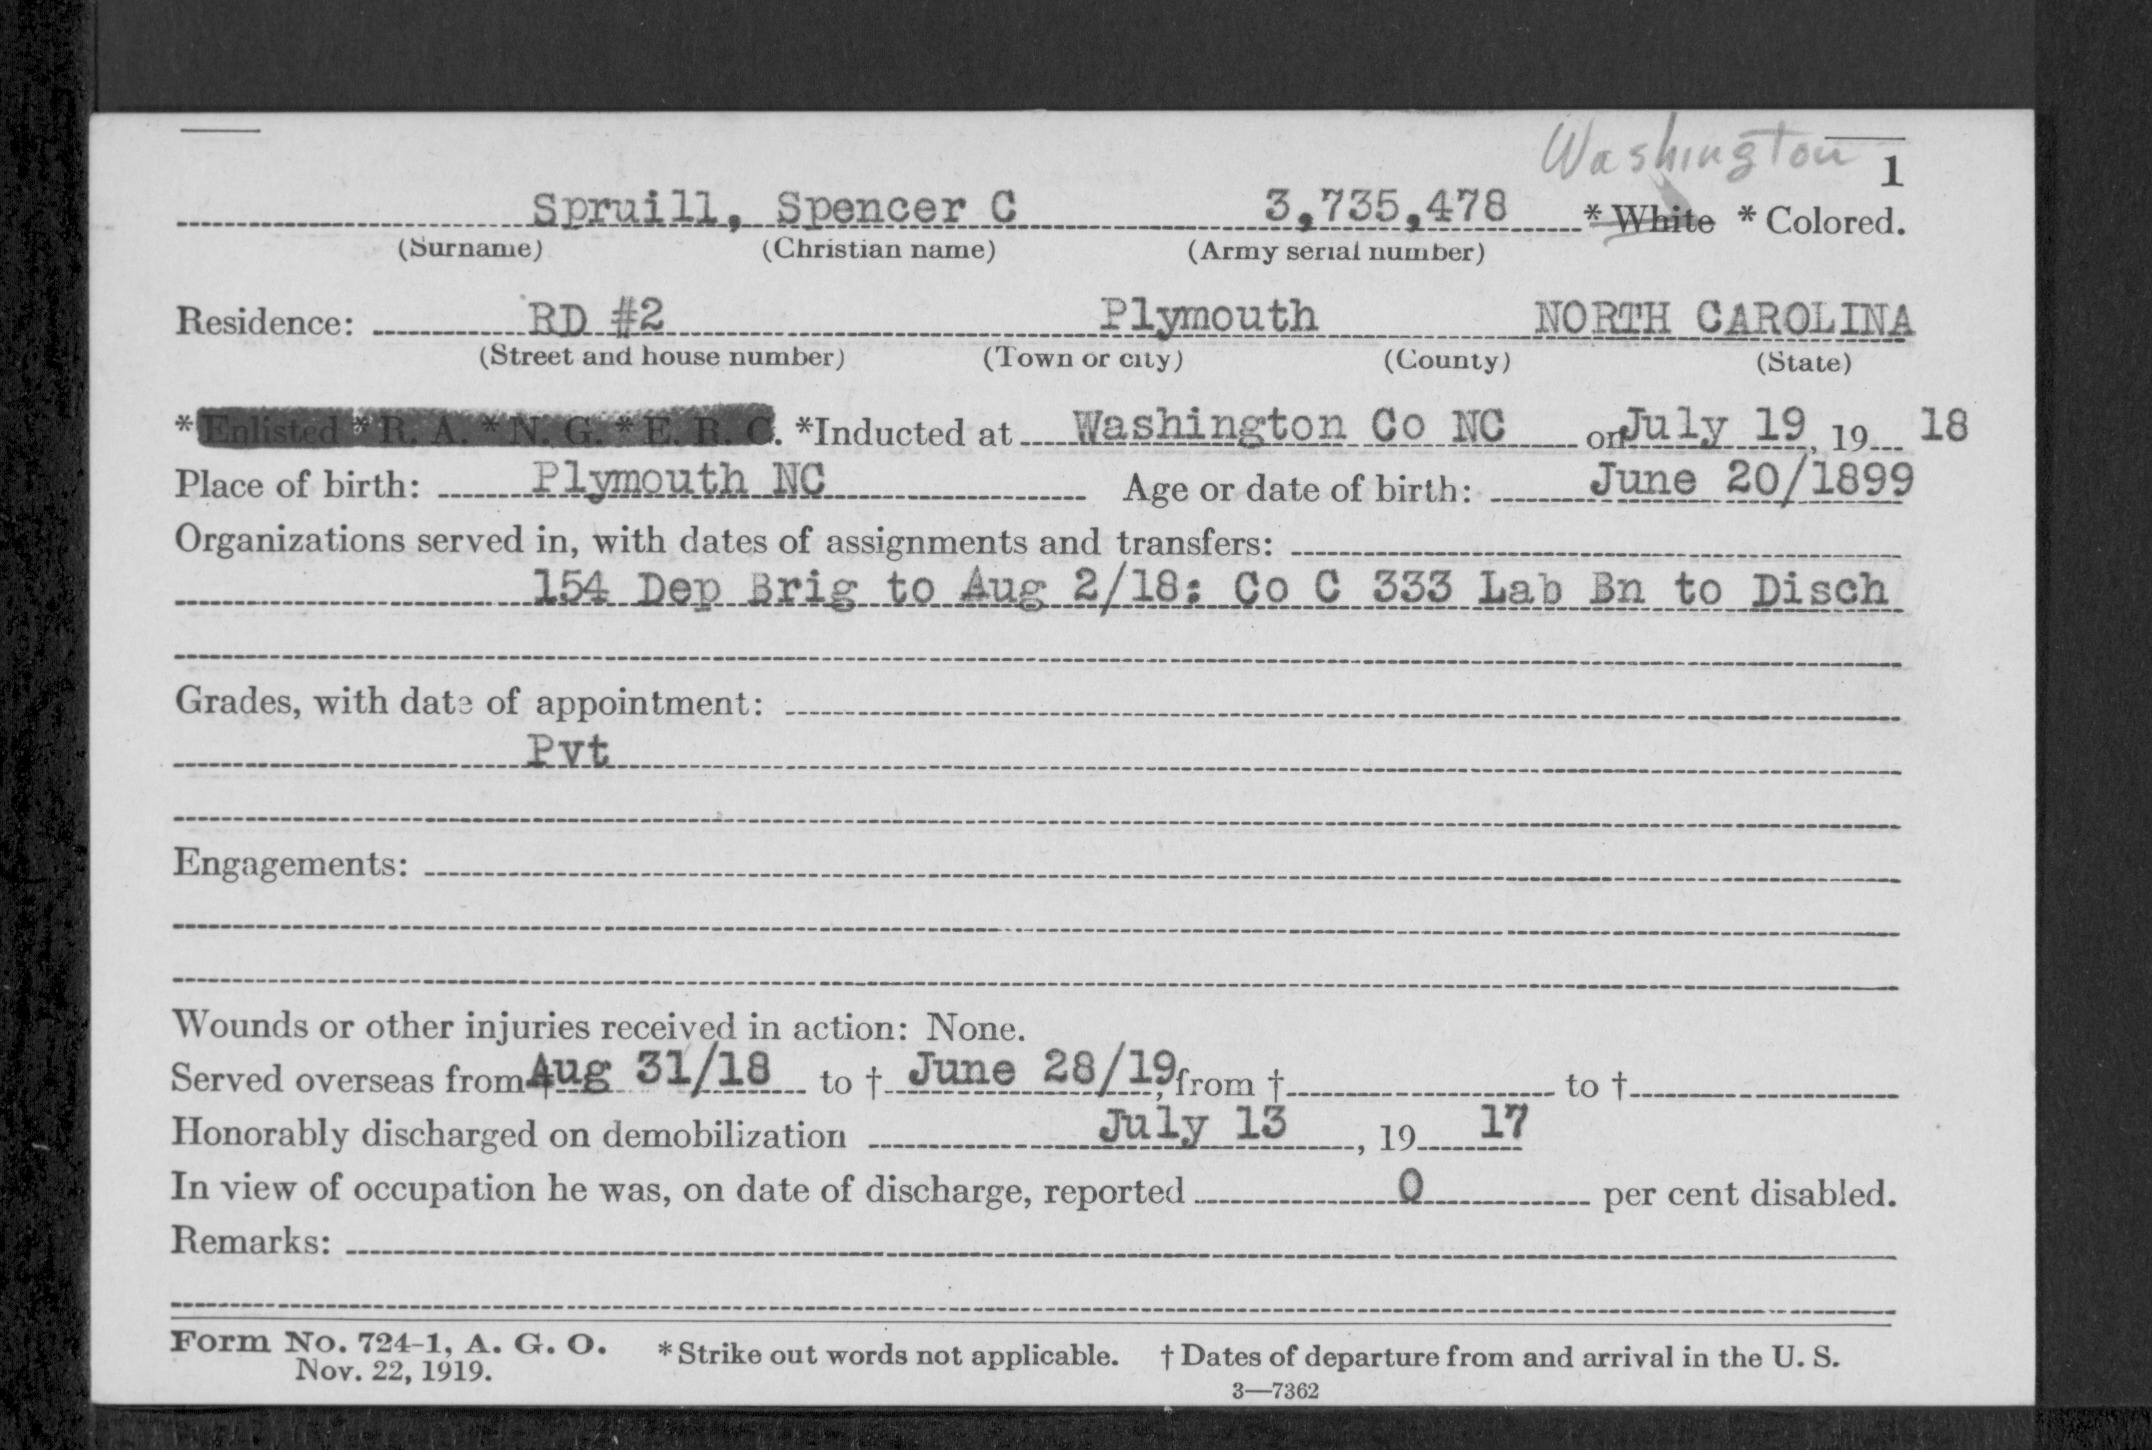 Washington
1
Spruill, Spencer C 3,735,478 * White * Colored.
(Surname) (Christian name) (Army serial number)
Residence: RD #2 Plymouth NORTH CAROLINA
(Street and house number) (Town or city) (County) (State)
*Enlisted *R. A. *N. G. *E. R. C. *Inducted at Washington Co NC on July 19, 19 18
Place of birth: Plymouth NC Age or date of birth: June 20/1899
Organizations served in, with dates of assignments and transfers:
154 Dep Brig to Aug 2/18: Co C 333 Lab Bn to Disch
Grades, with date of appointment:
Pvt
Engagements:
Wounds or other injuries received in action: None.
Served overseas from † Aug 31/18 to † June 28/19, from † to †
Honorably discharged on demobilization July 13, 19 17
In view of occupation he was, on date of discharge, reported 0 per cent disabled.
Remarks:
Form No. 724-1, A. G. O. *Strike out words not applicable. † Dates of departure from and arrival in the U. S.
Nov. 22, 1919.
3—7362